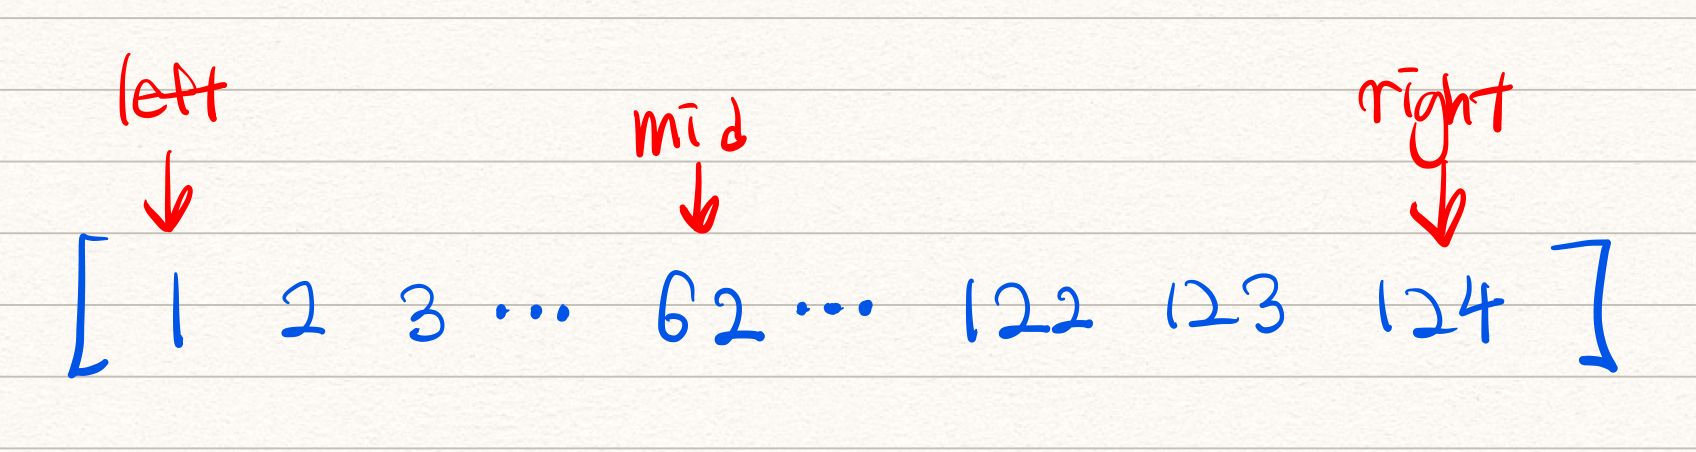 left mid right
[ 1 2 3 ... 62 ... 122 123 124 ]